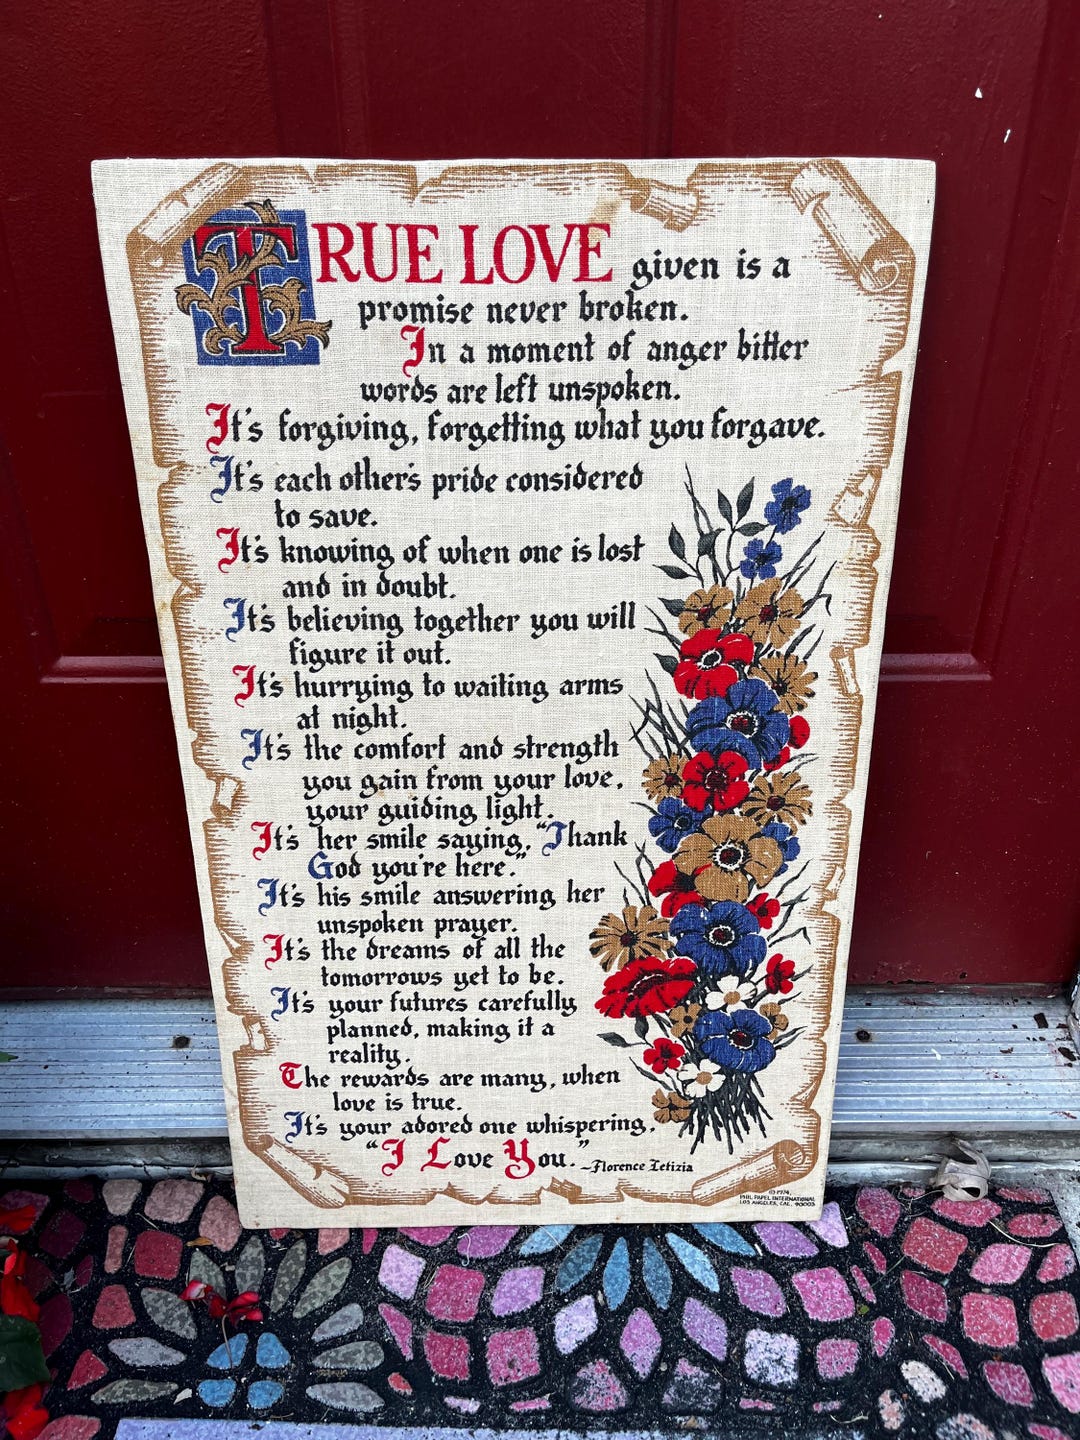 TRUE LOVE given is a
promise never broken.
In a moment of anger bitter
words are left unspoken.
It's forgiving, forgetting what you forgave.
It's each other's pride considered
to save.
It's knowing of when one is lost
and in doubt.
It's believing together you will
figure it out.
It's hurrying to waiting arms
at night.
It's the comfort and strength
you gain from your love,
your guiding light.
It's her smile saying, "Thank
God you're here."
It's his smile answering her
unspoken prayer.
It's the dreams of all the
tomorrows yet to be.
It's your futures carefully
planned, making it a
reality.
The rewards are many, when
love is true.
It's your adored one whispering,
"I Love You."
~Florence Letizia
© 1974,
PHIL PAPEL INTERNATIONAL
LOS ANGELES, CAL. 90003